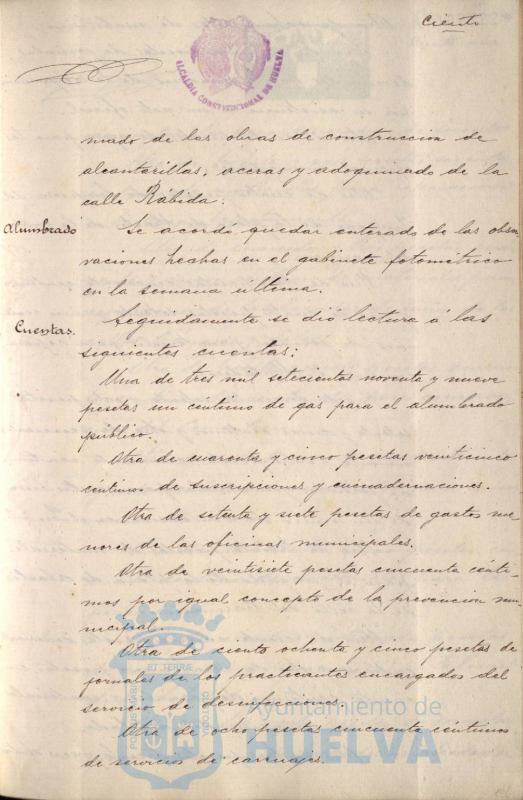 Ciento
ALCALDIA CONSTITUCIONAL DE HUELVA
mado de las obras de construccion de
alcantarillas, aceras y adoquinado de la
calle Rábida.
Alumbrado
Se acordó quedar enterado de las obser
vaciones hechas en el gabinete fotométrico
en la semana última.
Cuentas.
Seguidamente se dió lectura á las
siguientes cuentas:
Una de tres mil setecientas noventa y nueve
pesetas un céntimo de gas para el alumbrado
público.
Otra de cuarenta y cinco pesetas veinticinco
céntimos de suscripciones y encuadernaciones.
Otra de setenta y siete pesetas de gastos me
nores de las oficinas municipales.
Otra de veintisiete pesetas cincuenta cénti
mos por igual concepto de la prevencion mu
nicipal.
Otra de ciento ochenta y cinco pesetas de
jornales de los practicantes encargados del
servicio de desinfecciones.
Otra de ocho pesetas cincuenta céntimos
de servicios de carruajes.
PORTUS MARIS ET TERRAE CUSTODIA
Ayuntamiento de
HUELVA